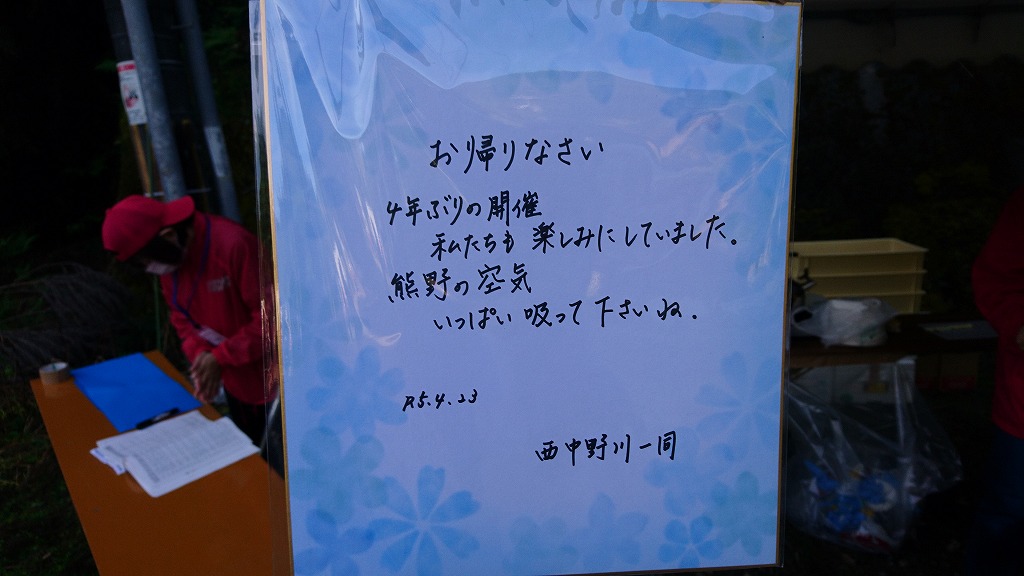 お帰りなさい
4年ぶりの開催
私たちも楽しみにしていました。
熊野の空気
いっぱい吸って下さいね.
R5.4.23
西中野川一同